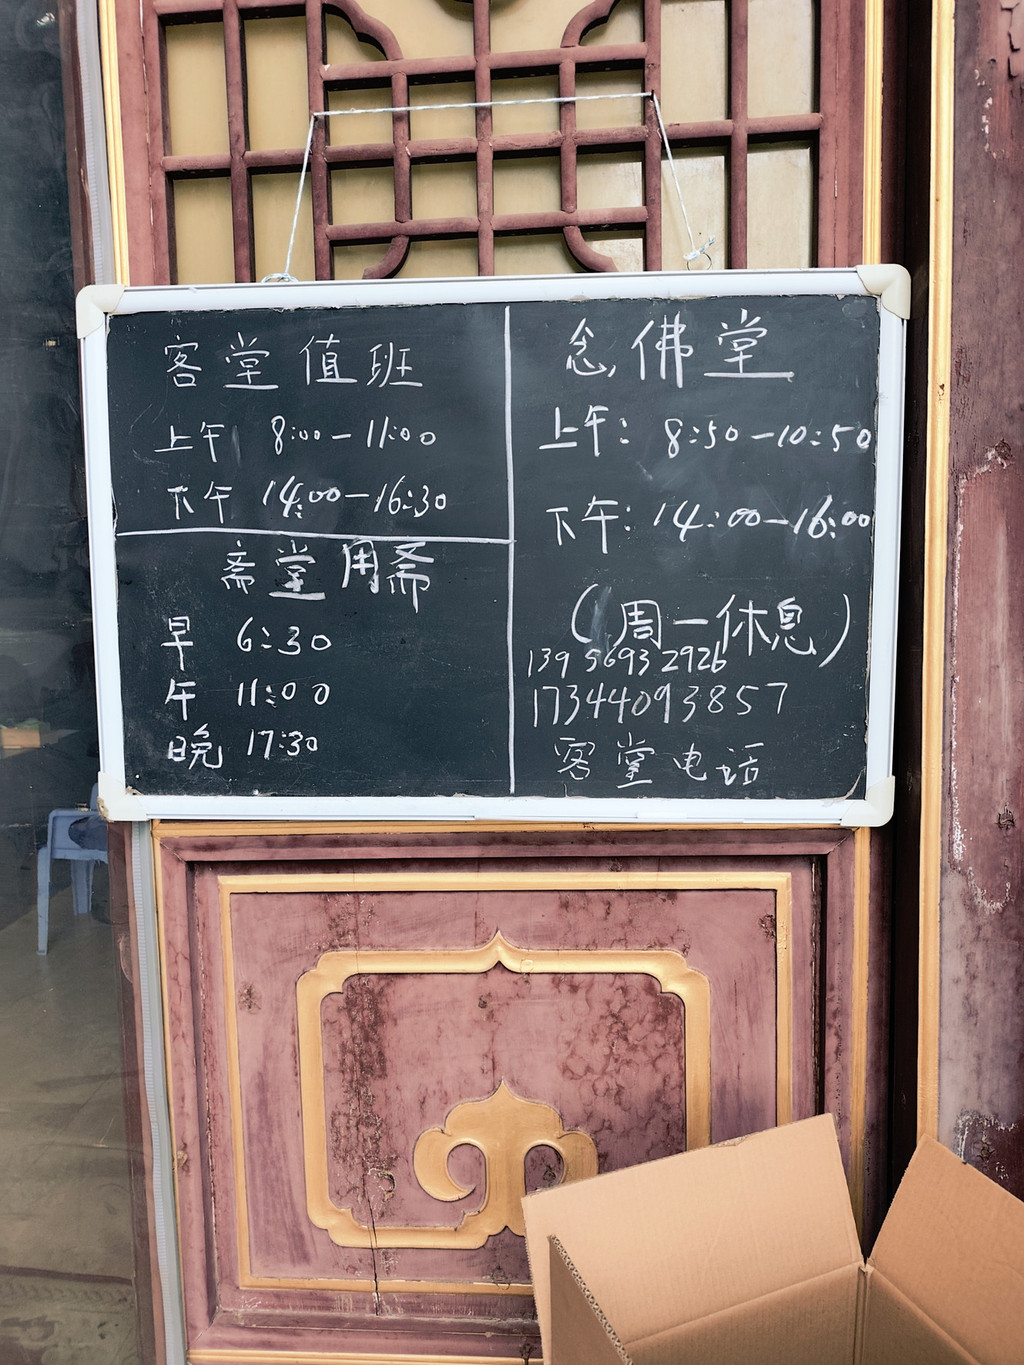 客堂值班
上午 8:00-11:00
下午 14:00-16:30
斋堂用斋
早 6:30
午 11:00
晚 17:30
念佛堂
上午: 8:50-10:50
下午: 14:00-16:00
(周一休息)
139 5693 2926
17344093857
客堂电话